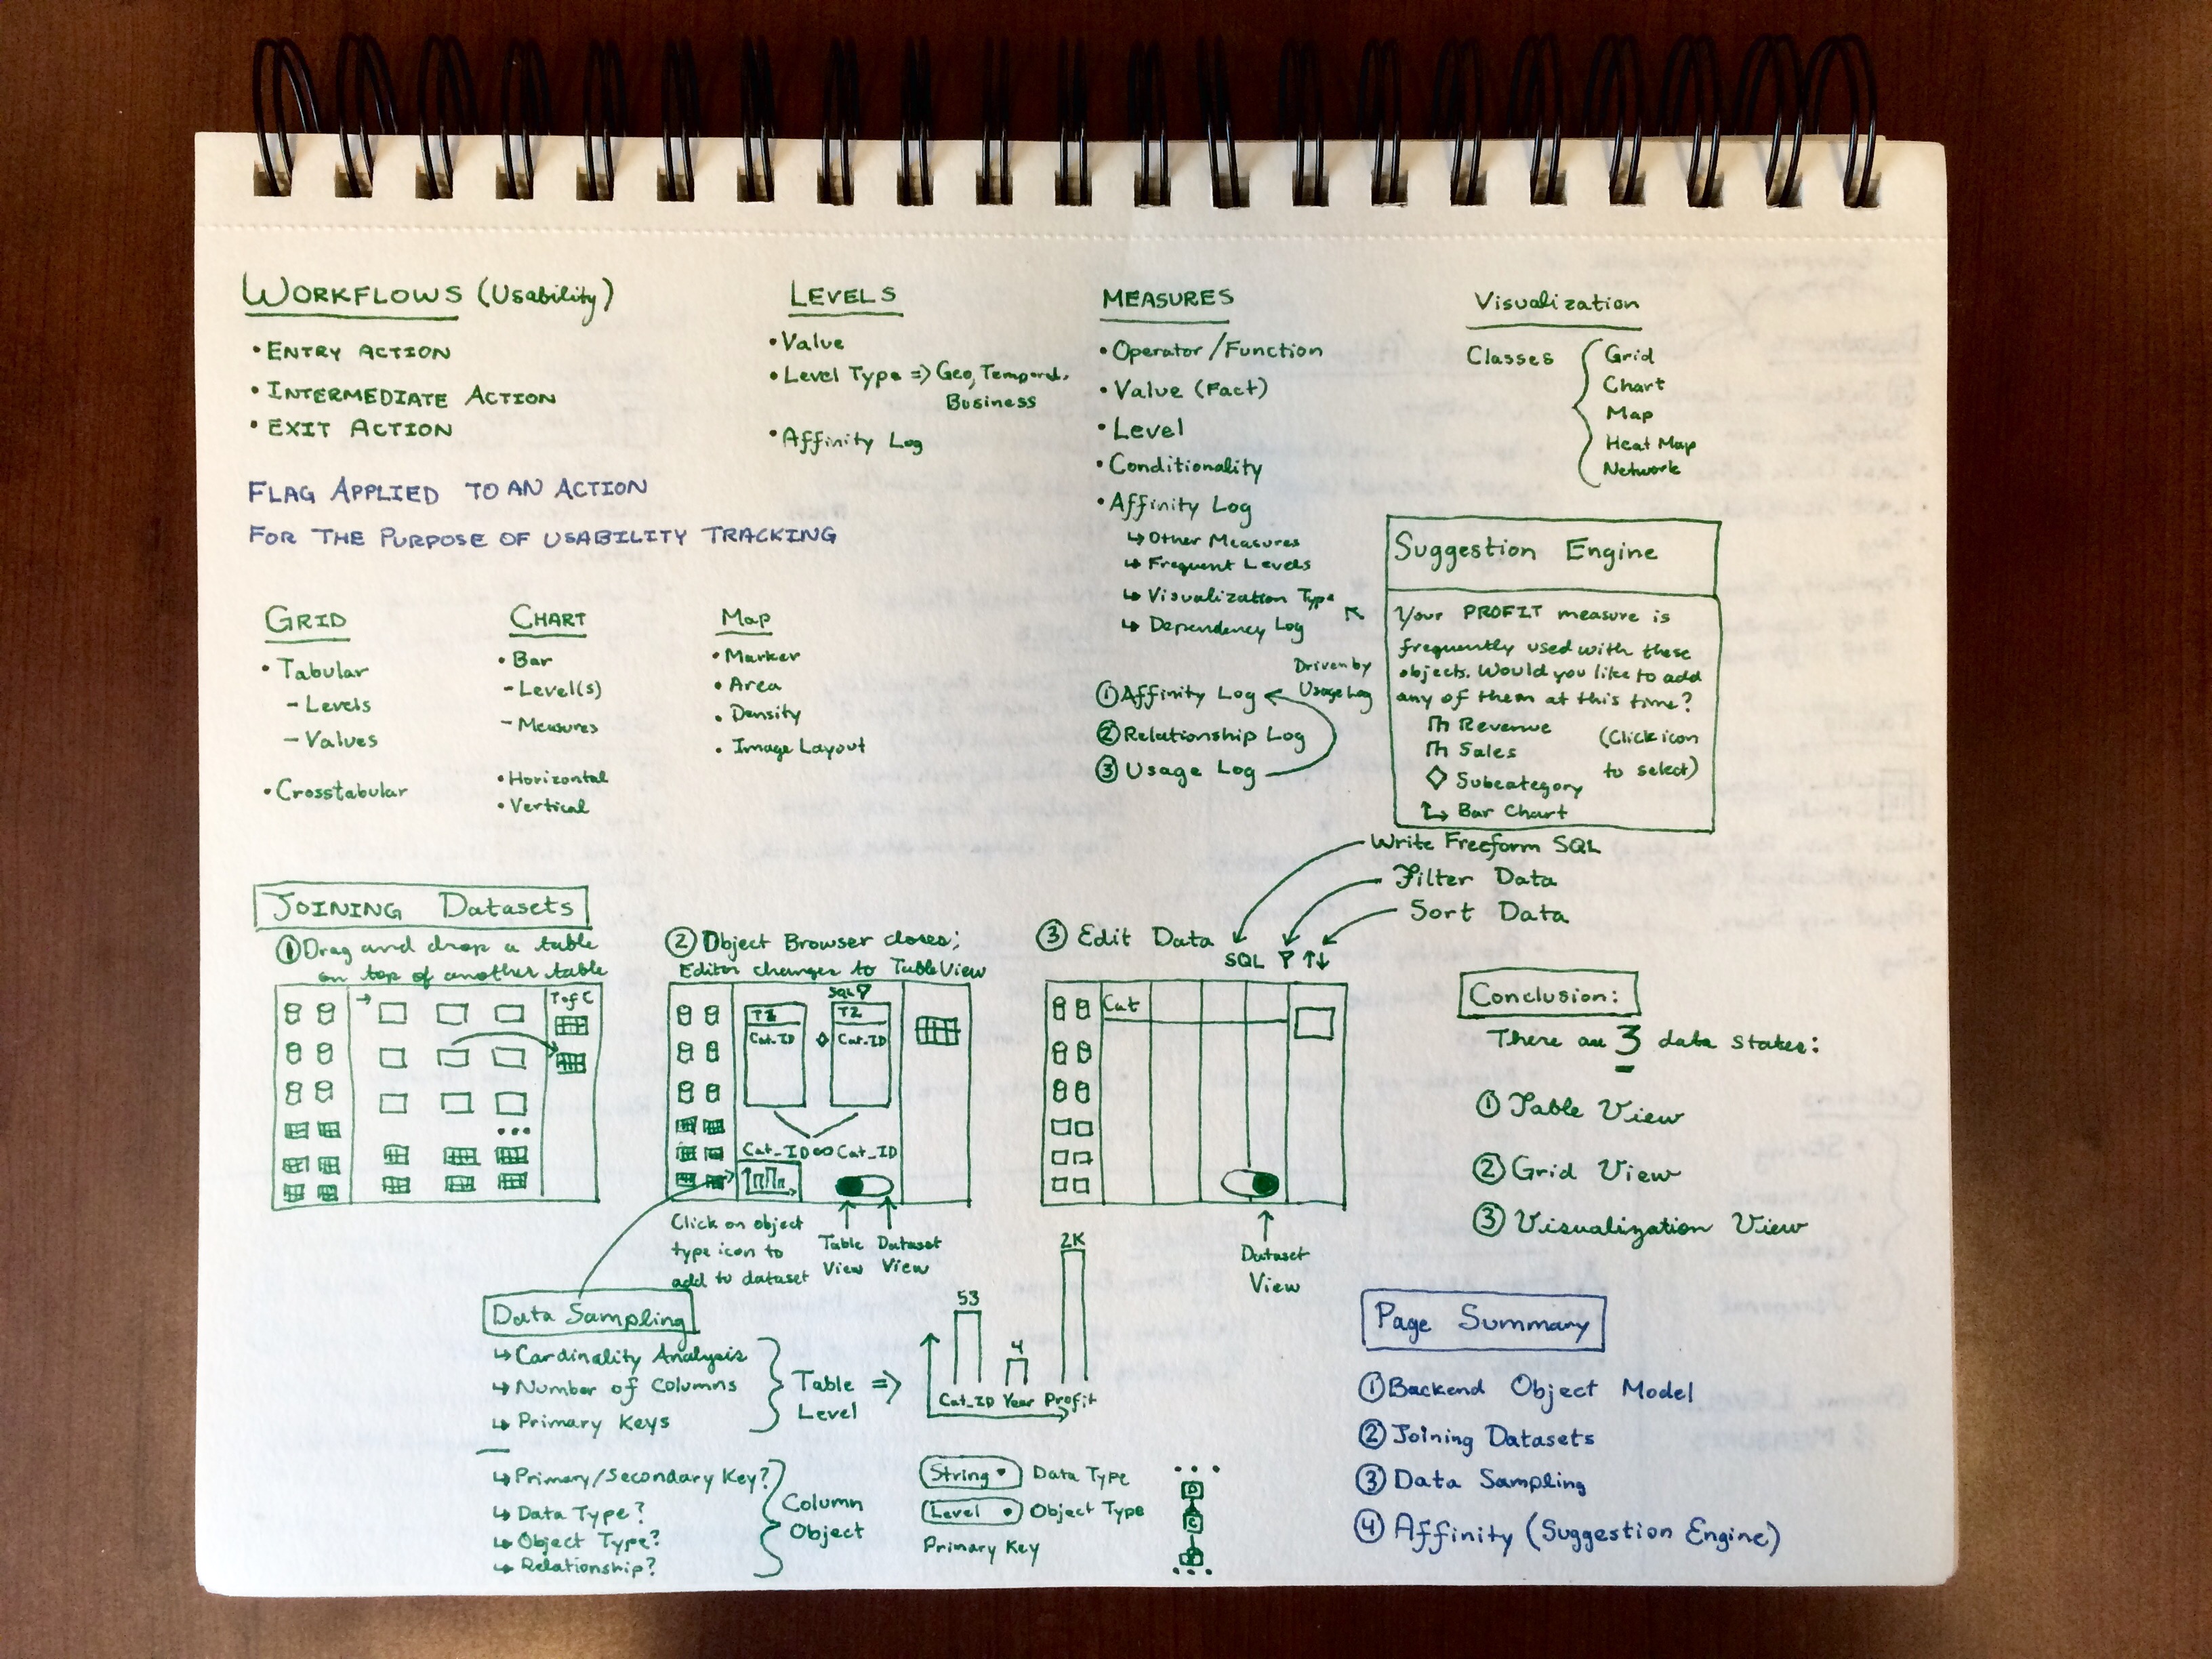 WORKFLOWS (Usability)
• ENTRY ACTION
• INTERMEDIATE ACTION
• EXIT ACTION
FLAG APPLIED TO AN ACTION
FOR THE PURPOSE OF USABILITY TRACKING
LEVELS
• Value
• Level Type => Geo, Temporal,
Business
• Affinity Log
MEASURES
• Operator/Function
• Value (Fact)
• Level
• Conditionality
• Affinity Log
↳ Other Measures
↳ Frequent Levels
↳ Visualization Type
↳ Dependency Log
① Affinity Log
② Relationship Log
③ Usage Log
Driven by
Usage Log
Visualization
Classes
Grid
Chart
Map
Heat Map
Network
Suggestion Engine
Your PROFIT measure is
frequently used with these
objects. Would you like to add
any of them at this time?
Revenue
Sales
Subcategory
Bar Chart
(Click icon
to select)
GRID
• Tabular
- Levels
- Values
• Crosstabular
CHART
• Bar
- Level(s)
- Measures
• Horizontal
• Vertical
MAP
• Marker
• Area
• Density
• Image Layout
JOINING Datasets
① Drag and drop a table
on top of another table
T of C
② Object Browser closes;
Editor changes to Table View
SQL
T1
T2
Cat_ID
Cat_ID
Cat_ID ∞ Cat_ID
Click on object
type icon to
add to dataset
Table
View
Dataset
View
③ Edit Data
Write Freeform SQL
Filter Data
Sort Data
SQL
↑↓
Cat
Dataset
View
Conclusion:
There are 3 data states:
① Table View
② Grid View
③ Visualization View
Data Sampling
↳ Cardinality Analysis
↳ Number of Columns
↳ Primary Keys
Table =>
Level
53
4
2K
Cat_ID Year Profit
↳ Primary/Secondary Key?
↳ Data Type?
↳ Object Type?
↳ Relationship?
Column
Object
String • Data Type
Level • Object Type
Primary Key
D
C
Page Summary
① Backend Object Model
② Joining Datasets
③ Data Sampling
④ Affinity (Suggestion Engine)